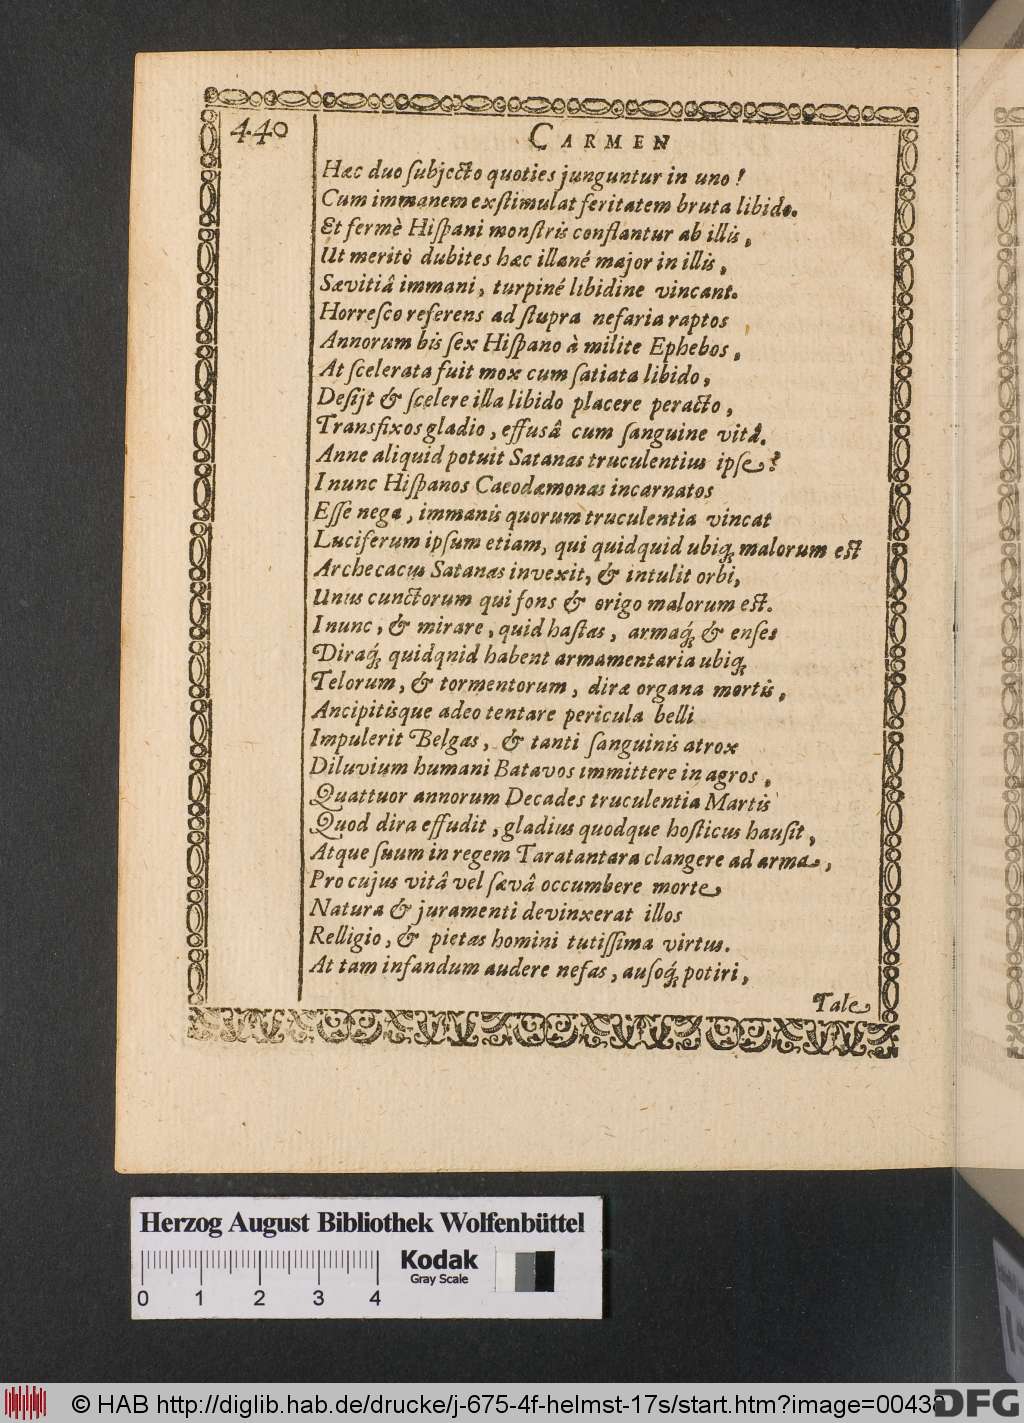 440
CARMEN
Hæc duo ſubjecto quoties junguntur in uno!
Cum immanem exſtimulat feritatem bruta libido.
Et fermè Hiſpani monſtris conflantur ab illis,
Ut meritò dubites hæc illané major in illis,
Sævitiâ immani, turpiné libidine vincant.
Horreſco referens ad ſtupra nefaria raptos
Annorum bis ſex Hiſpano à milite Ephebos,
At ſcelerata fuit mox cum ſatiata libido,
Deſijt & ſcelere illa libido placere peracto,
Transfixos gladio, effusâ cum ſanguine vitâ.
Anne aliquid potuit Satanas truculentius ipſe?
I nunc Hiſpanos Cacodæmonas incarnatos
Eſſe nega, immanis quorum truculentia vincat
Luciferum ipſum etiam, qui quidquid ubiq; malorum eſt
Archecacus Satanas invexit, & intulit orbi,
Unus cunctorum qui fons & origo malorum eſt.
I nunc, & mirare, quid haſtas, armaq́; & enſes
Diraq́; quidqnid habent armamentaria ubiq;
Telorum, & tormentorum, diræ organa mortis,
Ancipitisque adeo tentare pericula belli
Impulerit Belgas, & tanti ſanguinis atrox
Diluvium humani Batavos immittere in agros,
Quattuor annorum Decades truculentia Martis
Quod dira effudit, gladius quodque hoſticus hauſit,
Atque ſuum in regem Taratantara clangere ad arma,
Pro cujus vitâ vel ſævâ occumbere morte
Natura & juramenti devinxerat illos
Relligio, & pietas homini tutiſſima virtus.
At tam infandum audere nefas, auſoq́; potiri,
Tale
Herzog August Bibliothek Wolfenbüttel
Kodak
Gray Scale
0 1 2 3 4
© HAB http://diglib.hab.de/drucke/j-675-4f-helmst-17s/start.htm?image=00438
DFG